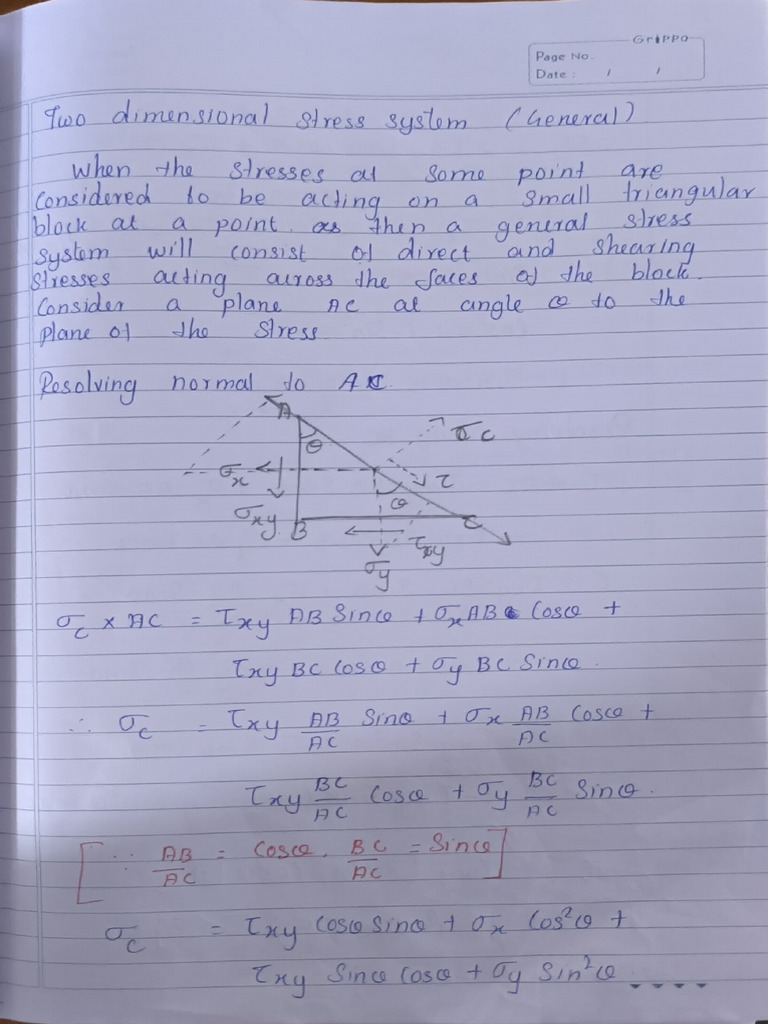 Grippo
Page No.
Date : / /
Two dimensional stress system (General)
When the stresses at some point are
considered to be acting on a small triangular
block at a point. as then a general stress
system will consist of direct and shearing
stresses acting across the faces of the block.
Consider a plane AC at angle θ to the
plane of the stress
Resolving normal to AC.
A
θ
σc
σx
τ
θ
σxy
B
C
τxy
σy
σc × AC = τxy AB Sinθ + σx AB Cosθ +
τxy BC Cosθ + σy BC Sinθ.
∴ σc = τxy AB/AC Sinθ + σx AB/AC Cosθ +
τxy BC/AC Cosθ + σy BC/AC Sinθ.
[∵ AB/AC = Cosθ, BC/AC = Sinθ]
σc = τxy Cosθ Sinθ + σx Cos²θ +
τxy Sinθ Cosθ + σy Sin²θ ....